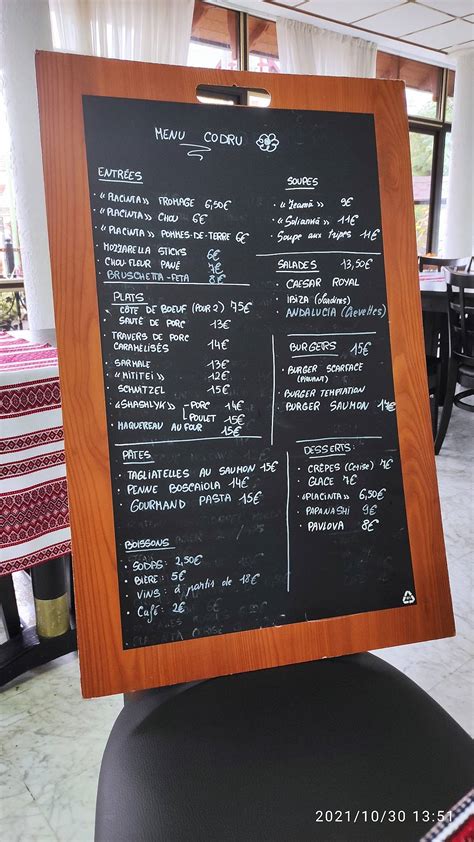 MENU CODRU
ENTRÉES
• "PLACINTA" FROMAGE 6,50€
• "PLACINTA" CHOU 6€
• "PLACINTA" POMMES-DE-TERRE 6€
• MOZZARELLA STICKS 6€
• CHOU-FLEUR PANÉ 7€
• BRUSCHETTA-FETA 8€
PLATS
CÔTE DE BOEUF (POUR 2) 75€
• SAUTÉ DE PORC 13€
TRAVERS DE PORC
CARAMELISÉS 14€
• SARMALE 13€
• "MITITEI" 12€
• SCHNITZEL 15€
• "SHASHLYK" - PORC 14€
POULET 15€
• MAQUEREAU AU FOUR 15€
PÂTES
• TAGLIATELLES AU SAUMON 15€
• PENNE BOSCAIOLA 14€
GOURMAND PASTA 15€
BOISSONS
• SODAS: 2,50€
• BIÈRE: 5€
• VINS: à partis de 18€
• Café: 2€
SOUPES
• "Zeamă" 9€
• "Solianka" 11€
• Soupe aux tripes 11€
SALADES 13,50€
• CAESAR ROYAL
• IBIZA
ANDALUCIA (Crevettes)
BURGERS 15€
• BURGER SCARFACE
(PIQUANT)
• BURGER TEMPTATION
BURGER SAUMON
DESSERTS:
• CRÊPES (Cerise) 7€
• GLACE 7€
• "PLACINTA" 6,50€
• PAPANASHI 9€
• PAVLOVA 8€
2021/10/30 13:51